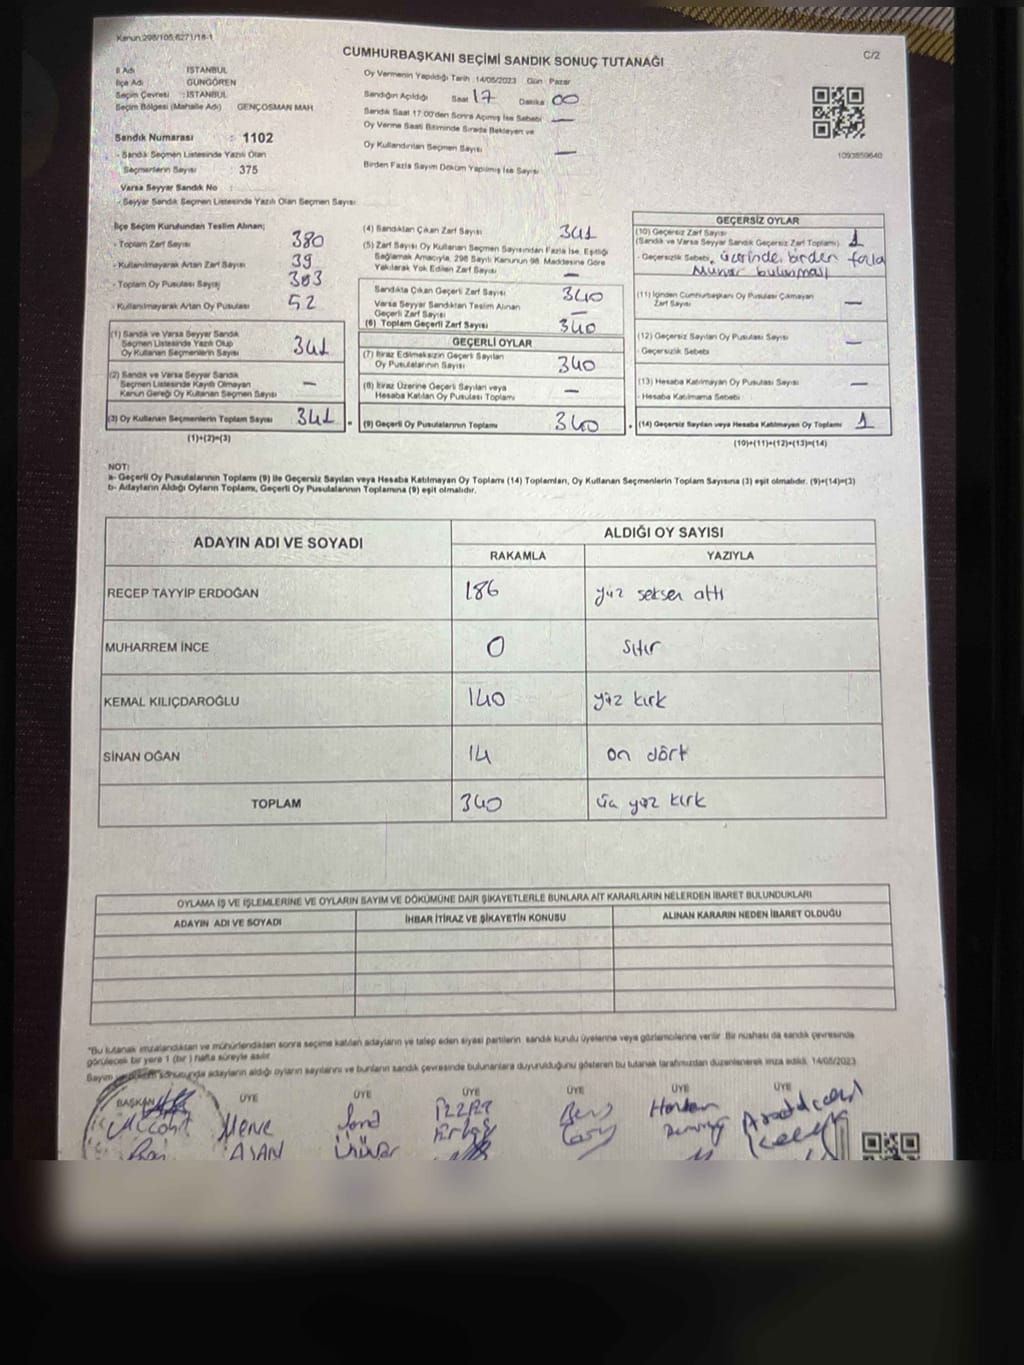 Kanun:298/105,6271/18-1
CUMHURBAŞKANI SEÇİMİ SANDIK SONUÇ TUTANAĞI
C/2
İl Adı İSTANBUL
İlçe Adı GÜNGÖREN
Seçim Çevresi : İSTANBUL
Seçim Bölgesi (Mahalle Adı) GENÇOSMAN MAH
Sandık Numarası : 1102
- Sandık Seçmen Listesinde Yazılı Olan
Seçmenlerin Sayısı : 375
Varsa Seyyar Sandık No :
- Seyyar Sandık Seçmen Listesinde Yazılı Olan Seçmen Sayısı
Oy Vermenin Yapıldığı Tarih : 14/05/2023 Gün Pazar
Sandığın Açıldığı Saat 17 Dakika 00
Sandık Saat 17:00'den Sonra Açımış İse Sebebi —
Oy Verme Saati Bitiminde Sırada Bekleyen ve
Oy Kullandırılan Seçmen Sayısı —
Birden Fazla Sayım Döküm Yapılmış İse Sayısı
1093859640
İlçe Seçim Kurulundan Teslim Alınan;
- Toplam Zarf Sayısı 380
- Kullanılmayarak Artan Zarf Sayısı 39
- Toplam Oy Pusulası Sayısı 393
- Kullanılmayarak Artan Oy Pusulası 52
(1) Sandık ve Varsa Seyyar Sandık
Seçmen Listesinde Yazılı Olup
Oy Kullanan Seçmenlerin Sayısı 341
(2) Sandık ve Varsa Seyyar Sandık
Seçmen Listesinde Kayıtlı Olmayan
Kanun Gereği Oy Kullanan Seçmen Sayısı —
(3) Oy Kullanan Seçmenlerin Toplam Sayısı 341
(1)+(2)=(3)
(4) Sandıktan Çıkan Zarf Sayısı 341
(5) Zarf Sayısı Oy Kullanan Seçmen Sayısından Fazla İse, Eşitliği
Sağlamak Amacıyla, 298 Sayılı Kanunun 98. Maddesine Göre
Yakılarak Yok Edilen Zarf Sayısı —
Sandıkta Çıkan Geçerli Zarf Sayısı 340
Varsa Seyyar Sandıktan Teslim Alınan
Geçerli Zarf Sayısı —
(6) Toplam Geçerli Zarf Sayısı 340
GEÇERLİ OYLAR
(7) İtiraz Edilmeksizin Geçerli Sayılan
Oy Pusulalarının Sayısı 340
(8) İtiraz Üzerine Geçerli Sayılan veya
Hesaba Katılan Oy Pusulası Toplamı —
= (9) Geçerli Oy Pusulalarının Toplamı 340
GEÇERSİZ OYLAR
(10) Geçersiz Zarf Sayısı
(Sandık ve Varsa Seyyar Sandık Geçersiz Zarf Toplamı) 1
- Geçersizlik Sebebi: üzerinde birden fazla
Mühür bulunması
(11) İçinden Cumhurbaşkanı Oy Pusulası Çıkmayan
Zarf Sayısı —
(12) Geçersiz Sayılan Oy Pusulası Sayısı —
- Geçersizlik Sebebi
(13) Hesaba Katılmayan Oy Pusulası Sayısı —
- Hesaba Katılmama Sebebi
+ (14) Geçersiz Sayılan veya Hesaba Katılmayan Oy Toplamı 1
(10)+(11)+(12)+(13)=(14)
NOT:
a- Geçerli Oy Pusulalarının Toplamı (9) ile Geçersiz Sayılan veya Hesaba Katılmayan Oy Toplamı (14) Toplamları, Oy Kullanan Seçmenlerin Toplam Sayısına (3) eşit olmalıdır. (9)+(14)=(3)
b- Adayların Aldığı Oyların Toplamı, Geçerli Oy Pusulalarının Toplamına (9) eşit olmalıdır.
ADAYIN ADI VE SOYADI ALDIĞI OY SAYISI
RAKAMLA YAZIYLA
RECEP TAYYİP ERDOĞAN 186 yüz seksen altı
MUHARREM İNCE 0 Sıfır
KEMAL KILIÇDAROĞLU 140 yüz kırk
SİNAN OĞAN 14 on dört
TOPLAM 340 üç yüz kırk
OYLAMA İŞ VE İŞLEMLERİNE VE OYLARIN SAYIM VE DÖKÜMÜNE DAİR ŞİKAYETLERLE BUNLARA AİT KARARLARIN NELERDEN İBARET BULUNDUKLARI
ADAYIN ADI VE SOYADI İHBAR İTİRAZ VE ŞİKAYETİN KONUSU ALINAN KARARIN NEDEN İBARET OLDUĞU
"Bu tutanak imzalandıktan ve mühürlendikten sonra seçime katılan adayların ve talep eden siyasi partilerin sandık kurulu üyelerine veya gözlemcilerine verilir. Bir nüshası da sandık çevresinde
görülecek bir yere 1 (bir) hafta süreyle asılır.
Sayım ve döküm sonucunda adayların aldığı oyların sayılarını ve bunların sandık çevresinde bulunanlara duyurulduğunu gösteren bu tutanak tarafımızdan düzenlenerek imza edildi. 14/05/2023
BAŞKAN ÜYE ÜYE ÜYE ÜYE ÜYE ÜYE
Merve